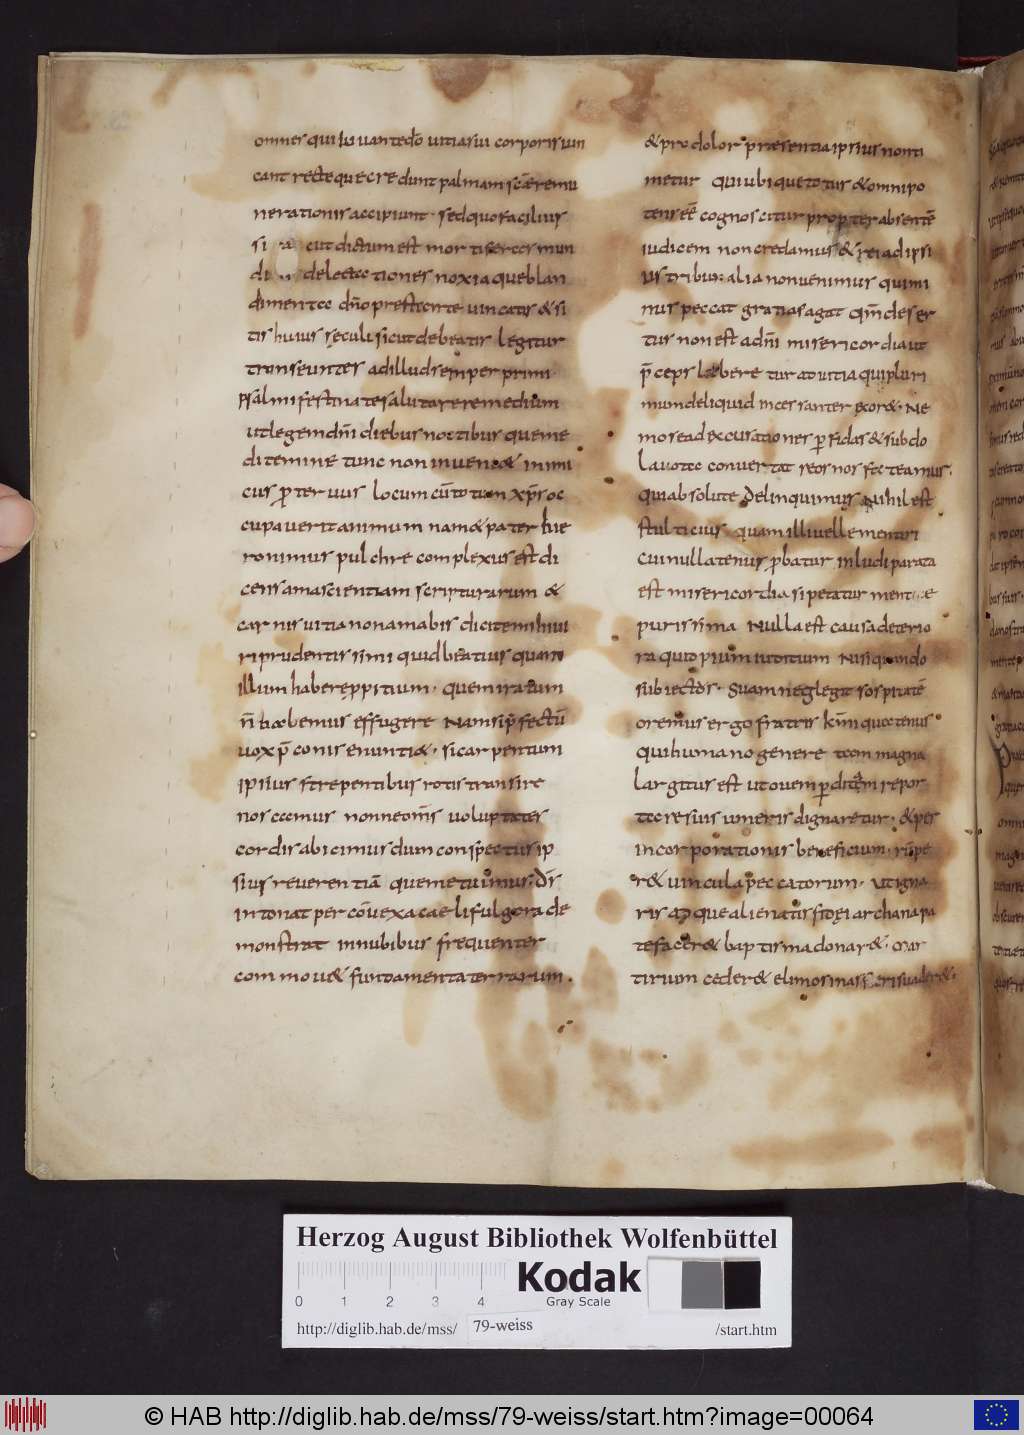 omnes qui iuuante dõ uitia sui corporis uin
cant recteque credunt palmam scãe remu
nerationis accipiunt · sed quo facilius
si cut dictum est mortiferas mun
di delectationes noxiaque blan
dimenta dño prestante uincatis & si
tis huius seculi sicut debeatis legitur
transeuntes ad illud semper primi
psalmi festinate salutare remedium
ut legem dñi diebus noctibusque me
ditemini tunc non inueni& inimi
cus p̱ter uus locum cũ totum xp̄s oc
cupauerit animum nam & pater hie
ronimus pulchre complexus est di
cens ama scientiam scripturarum &
carnis uitia non amabis dicite mihi ui
ri prudentissimi quid beatius quam
illum habere ppitium · quem iratum
ñ ualebemus effugere Nam si p̄fectũ
uox p̄conis enunti& · si carpentum
ipsius strepentibus rotis transire
noscamus nonne om̄s uoluptates
cordis abicimus dum conspectus ip
sius reuerentiã que metuimus · Ds̄
intonat per conuexa caeli fulgora de
monstrat in nubibus frequenter
commou& fundamenta terrarum .
& pro dolor praesentia ipsius non ti
metur qui ubique totus & omnipo
tens eẽ cognoscitur propter absentẽ
iudicem non credamus & rei ad ipsi
us tribunalia non uenimus qui mi
nus peccat gratias agat qm̄ deser
tus non est a dñi misericordia ut
p̄ceps laberetur at uitia qui pluri
mum deliquid incessanter exor& · Ne
mo se ad excusationes p̱fidas & subdo
la uota conuertat reos nos facteamus ·
qui absolute delinquimus Nihil est
stultius quam illi uelle mentiri
cui nullatenus p̱batur inludi parata
est misericordia si petatur mente
purissima Nulla est causa deterio
ra quo pium iuditium Nisi quando
subiectos · suam neglegit sospitatẽ
oremus ergo fratris km̄i quatenus
qui humano genere tam magna
largitus est ut ouem p̱ditam repor
tare suis umeris dignaretur · & per
incorporationis beneficium · rupe
r& uincula peccatorum · ut igna
ris atque alienatis fidei archana pa
tefacer& baptisma donar& · mar
tirum ceder& elimosinas suader& ·
Herzog August Bibliothek Wolfenbüttel
Kodak
Gray Scale
0 1 2 3 4
http://diglib.hab.de/mss/ 79-weiss /start.htm
© HAB http://diglib.hab.de/mss/79-weiss/start.htm?image=00064